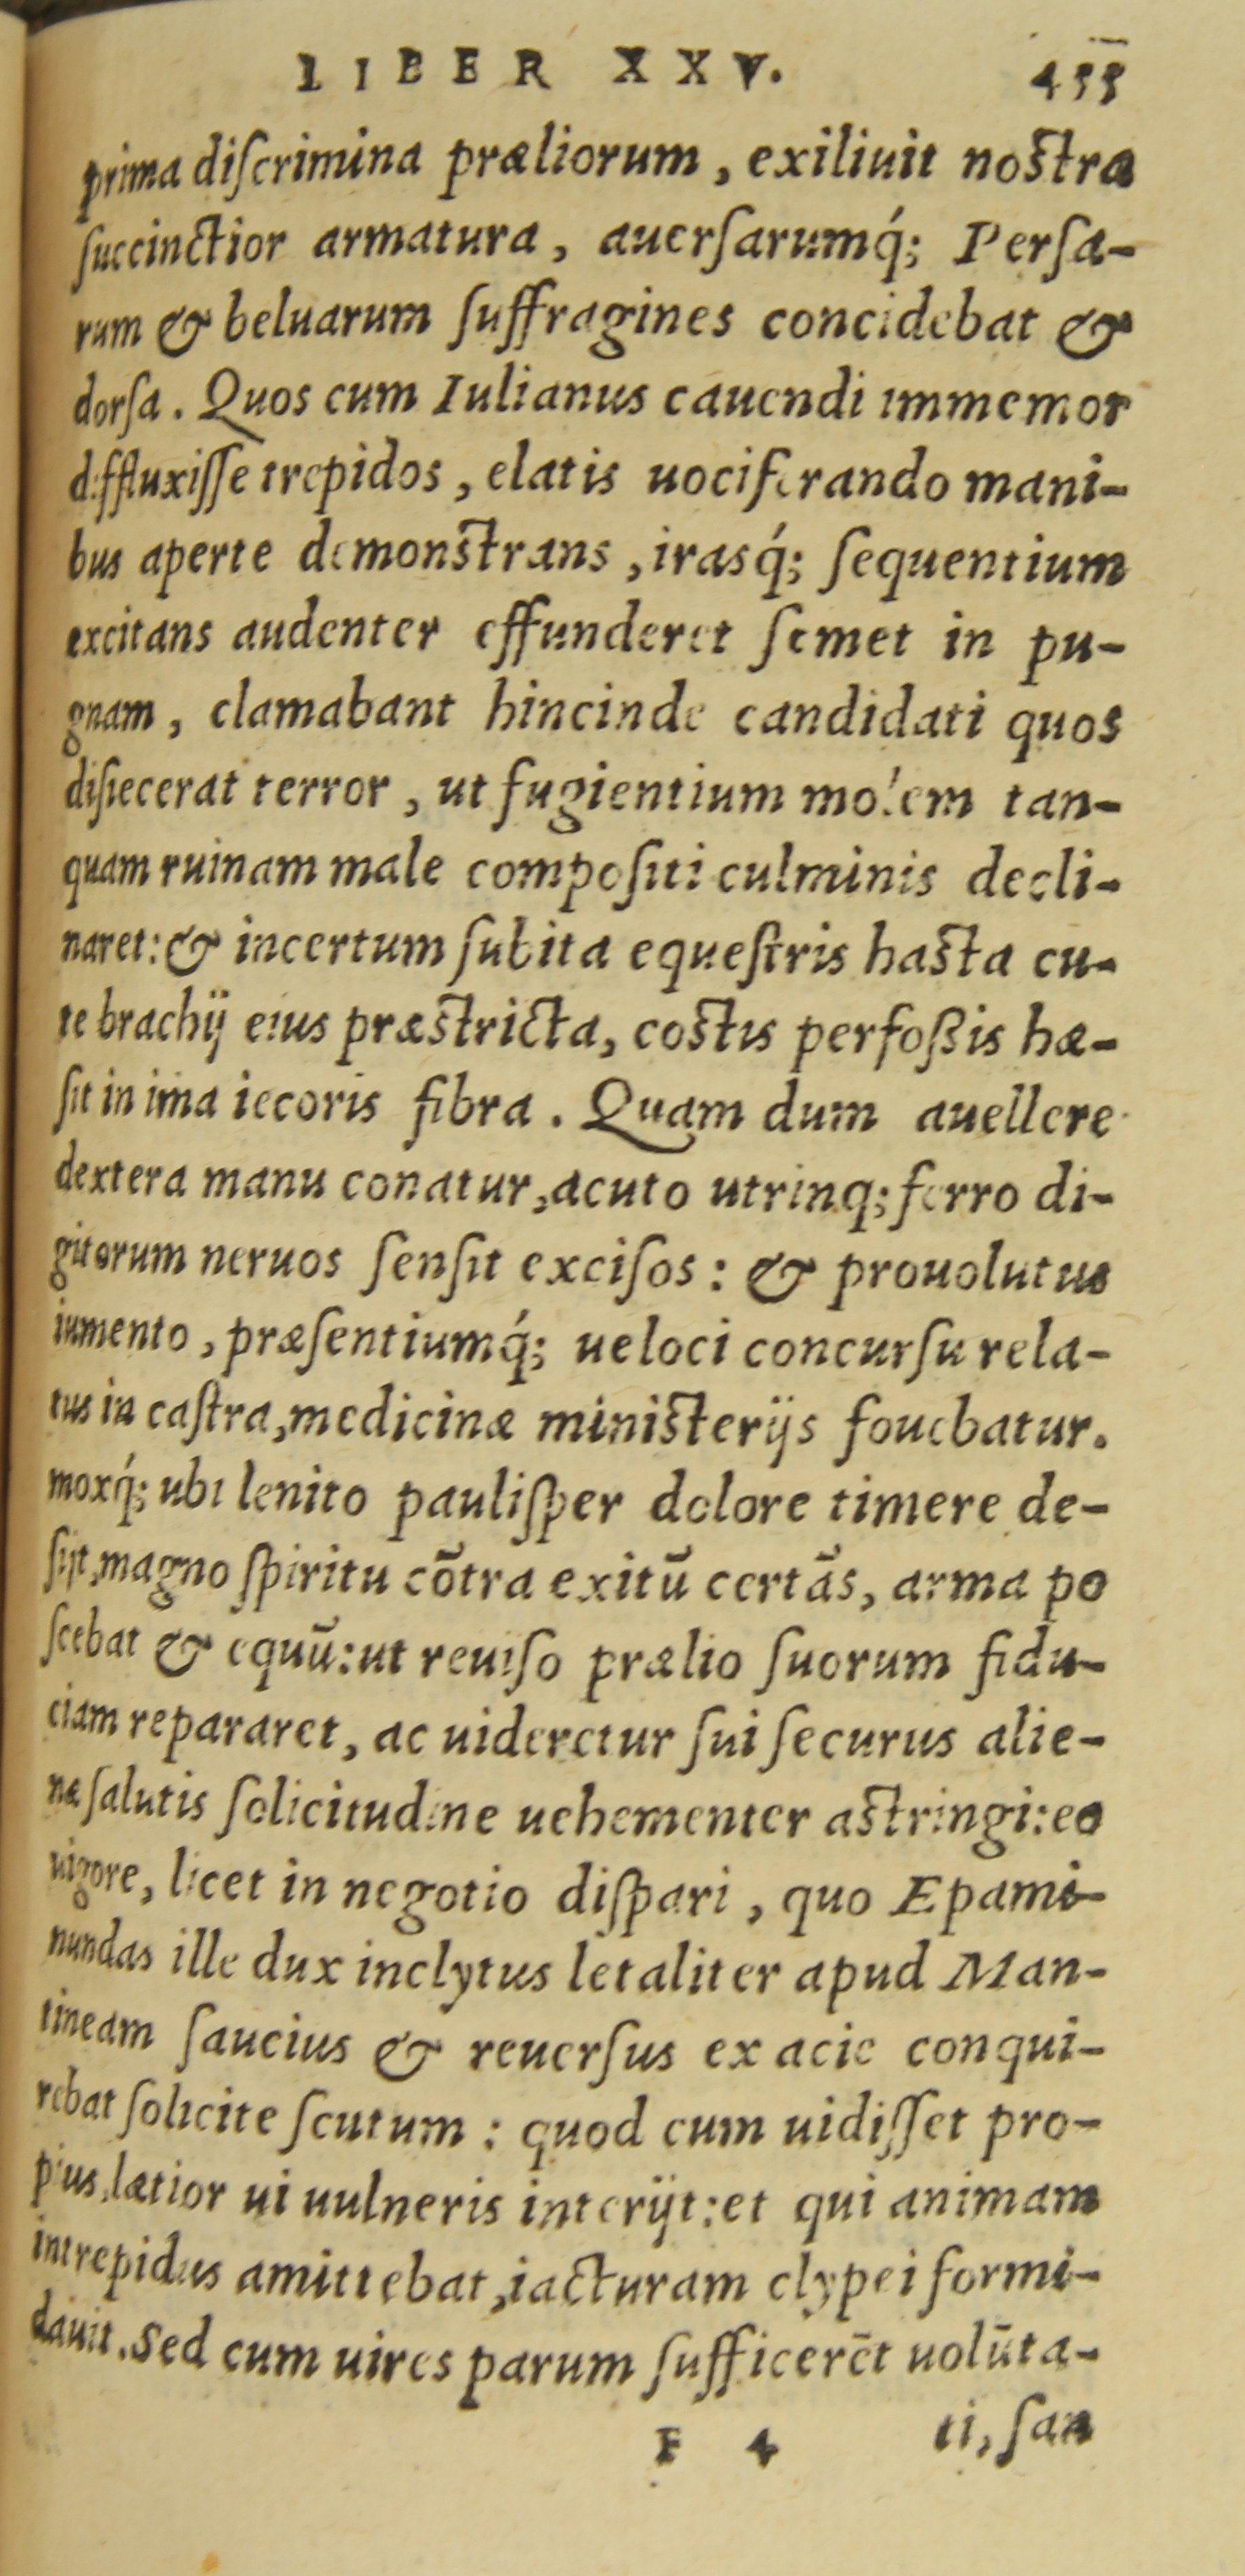 LIBER XXV. 455
prima diſcrimina præliorum, exiliuit noſtra
ſuccinctior armatura, auerſarumq́; Perſa-
rum & beluarum ſuffragines concidebat &
dorſa. Quos cum Iulianus cauendi immemor
diffluxiſſe trepidos, elatis uociferando mani-
bus aperte demonſtrans, irasq́; ſequentium
excitans audenter effunderet ſemet in pu-
gnam, clamabant hincinde candidati quos
diſiecerat terror, ut fugientium molem tan-
quam ruinam male compoſiti culminis decli-
naret: & incertum ſubita equeſtris haſta cu-
te brachij eius præſtricta, coſtis perfoßis hæ-
ſit in ima iecoris fibra. Quam dum auellere
dextera manu conatur, acuto utrinq; ferro di-
gitorum neruos ſenſit exciſos: & prouolutus
iumento, præſentiumq́; ueloci concurſu rela-
tus in caſtra, medicinæ miniſterijs fouebatur.
moxq́; ubi lenito pauliſper dolore timere de-
ſijt, magno ſpiritu cōtra exitū certās, arma po
ſcebat & equū: ut reuiſo prælio ſuorum fidu-
ciam repararet, ac uideretur ſui ſecurus alie-
næ ſalutis ſolicitudine uehementer aſtringi: eo
uigore, licet in negotio diſpari, quo Epami-
nundas ille dux inclytus letaliter apud Man-
tineam ſaucius & reuerſus ex acie conqui-
rebat ſolicite ſcutum: quod cum uidiſſet pro-
pius, lætior ui uulneris interijt: et qui animam
intrepidus amittebat, iacturam clypei formi-
dauit. Sed cum uires parum ſufficerēt uolūta-
F 4 ti, ſan